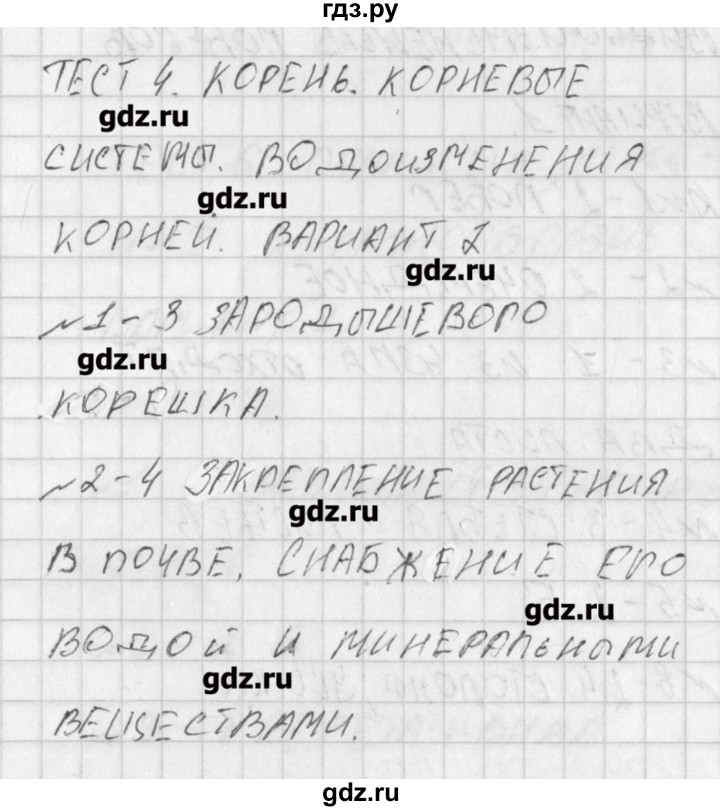 гдз.ру
ТЕСТ 4. КОРЕНЬ. КОРНЕВЫЕ
gdz.ru
СИСТЕМЫ. ВОДОИЗМЕНЕНИЯ
gdz.ru
КОРНЕЙ. ВАРИАНТ 2
gdz.ru
№1-3 ЗАРОДЫШЕВОГО
gdz.ru
КОРЕШКА.
№2-4 ЗАКРЕПЛЕНИЕ РАСТЕНИЯ
gdz.ru
В ПОЧВЕ, СНАБЖЕНИЕ ЕГО
gdz.ru
ВОДОЙ И МИНЕРАЛЬНЫМИ
gdz.ru
ВЕЩЕСТВАМИ.
gdz.ru